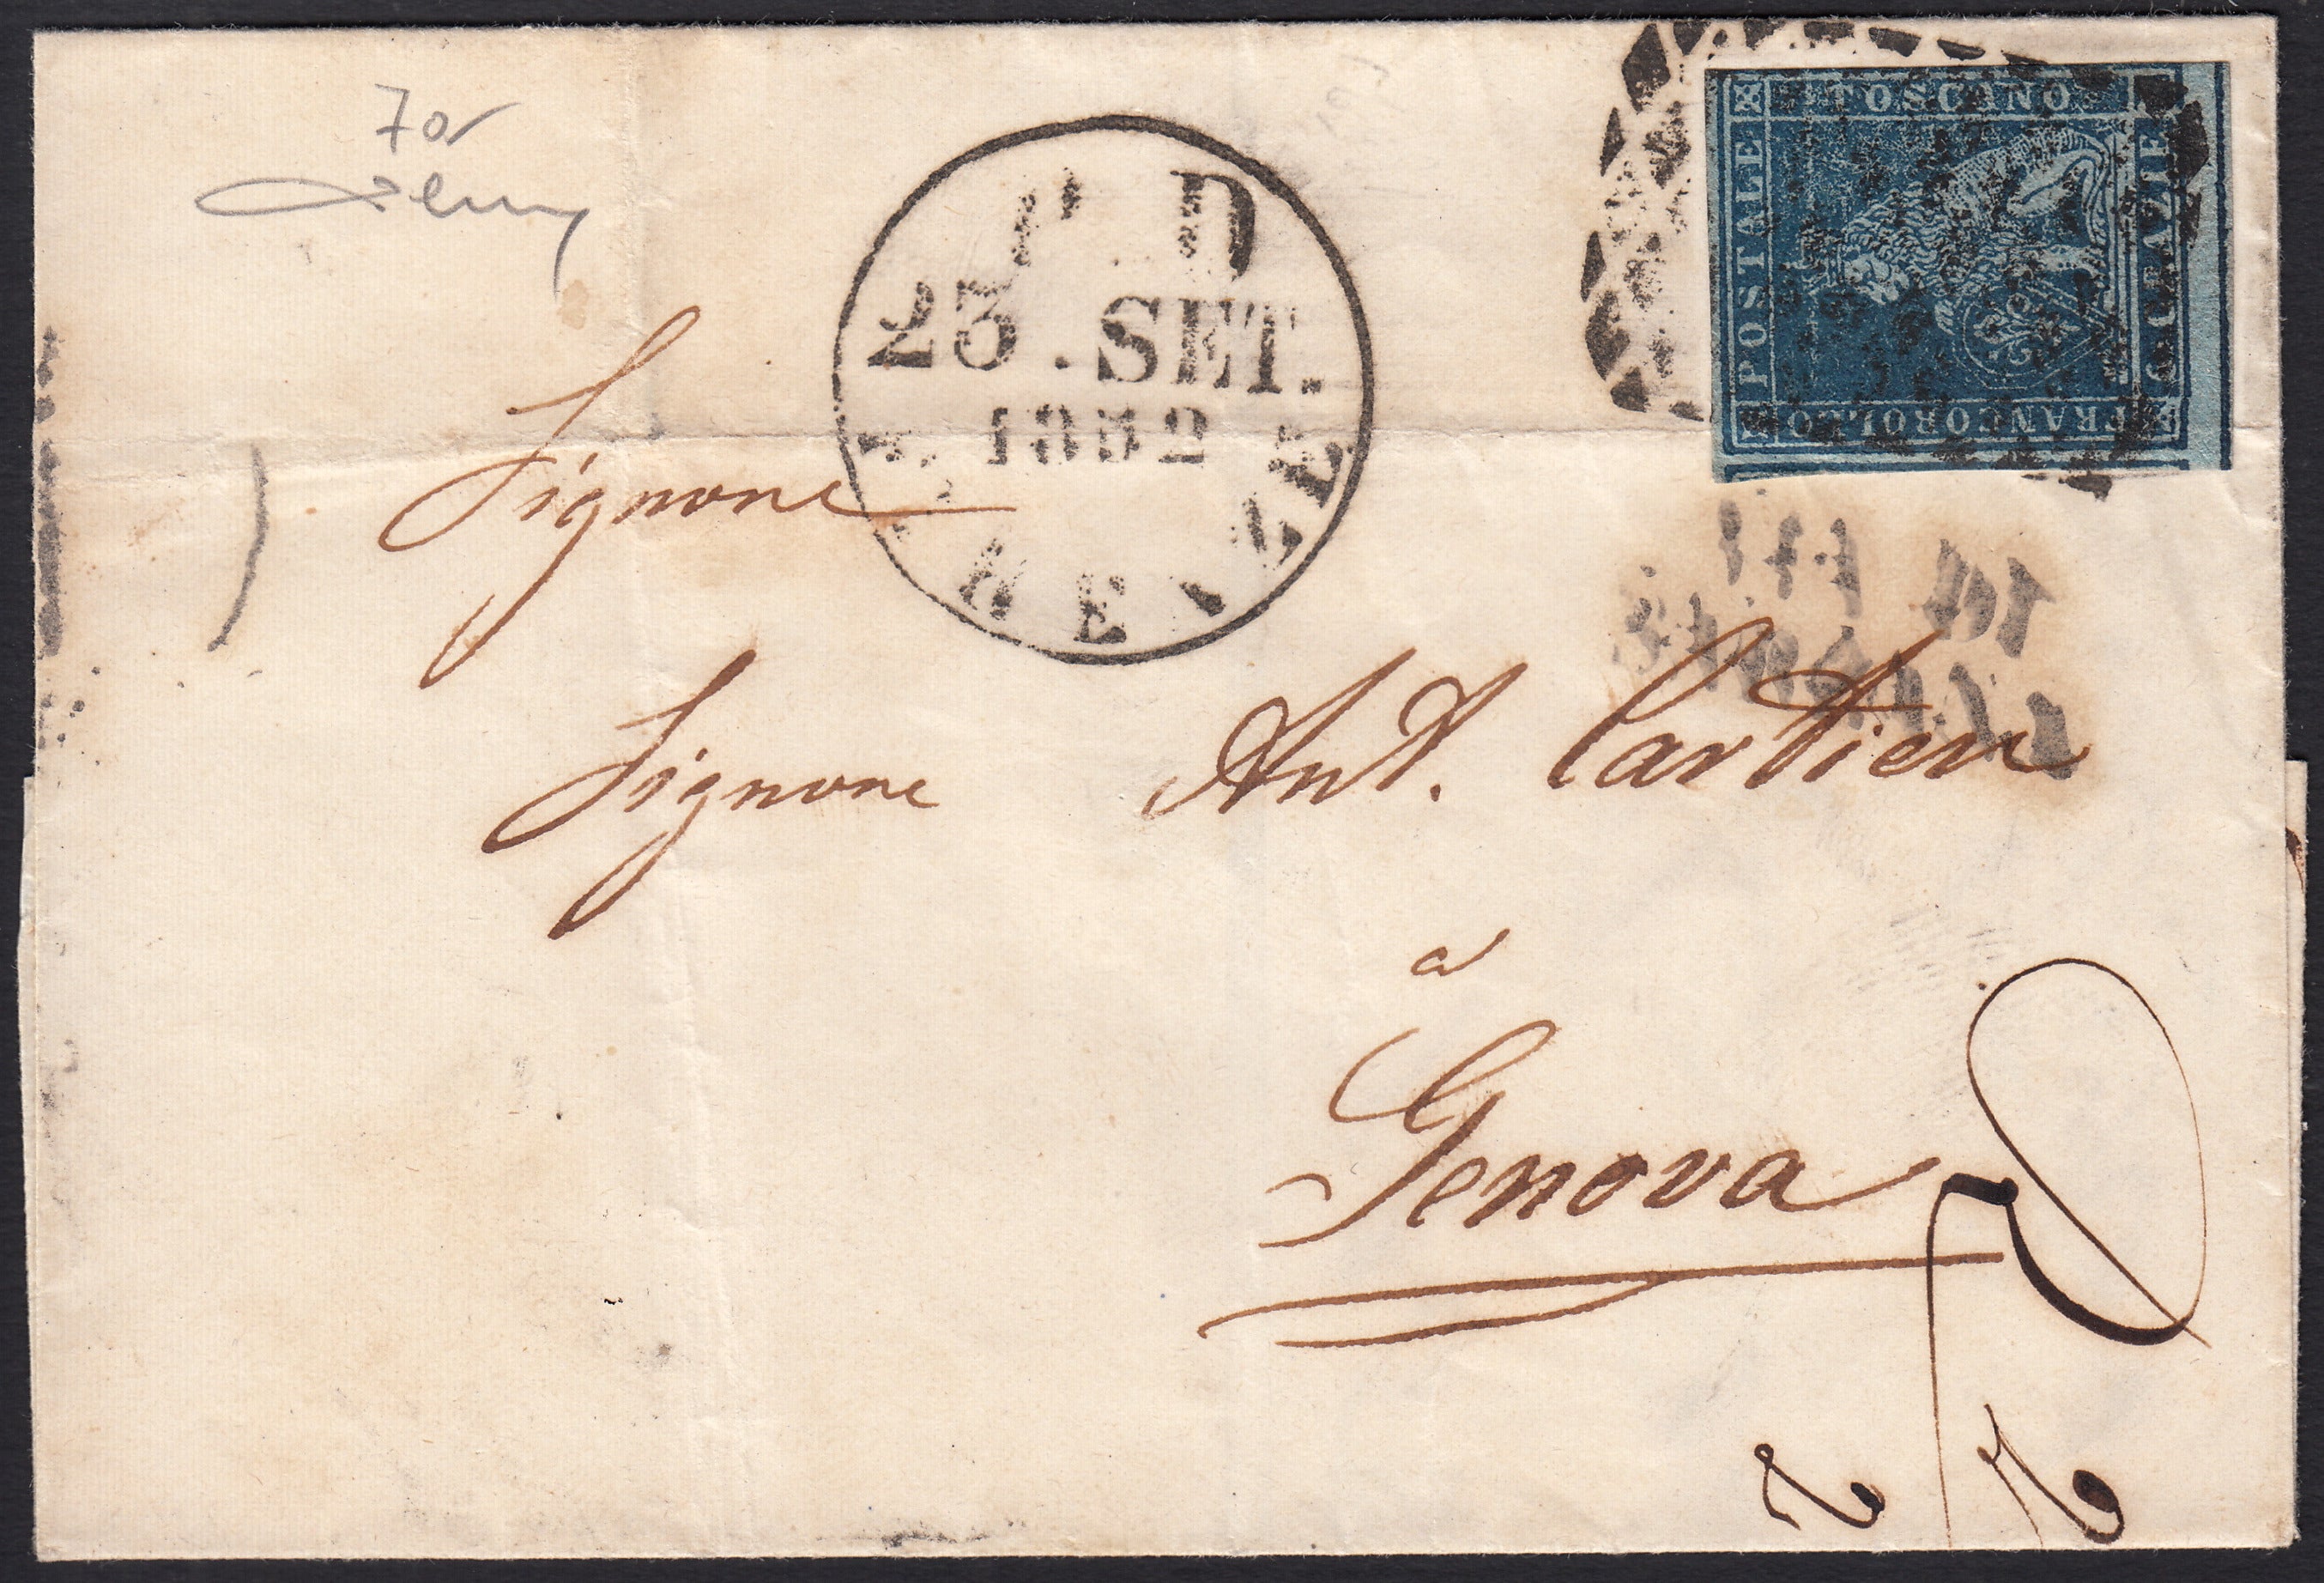 70
P D
23 . SET.
1852
FIRENZE
FRANCOBOLLO
POSTALE
TOSCANO
6 CRAZIE
Signore
Signore Ant. Cartieri
a
Genova
2 2